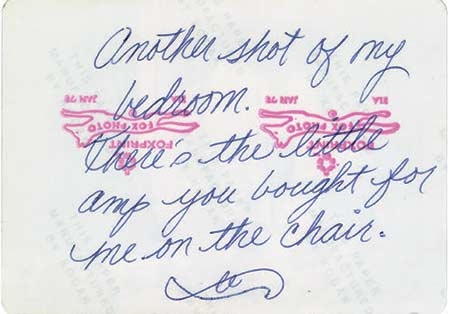 Another shot of my
bedroom.
There's the little
amp you bought for
me on the chair.
JAN 78
FOXPRINT
FOX PHOTO
JAN 78
FOXPRINT
FOX PHOTO